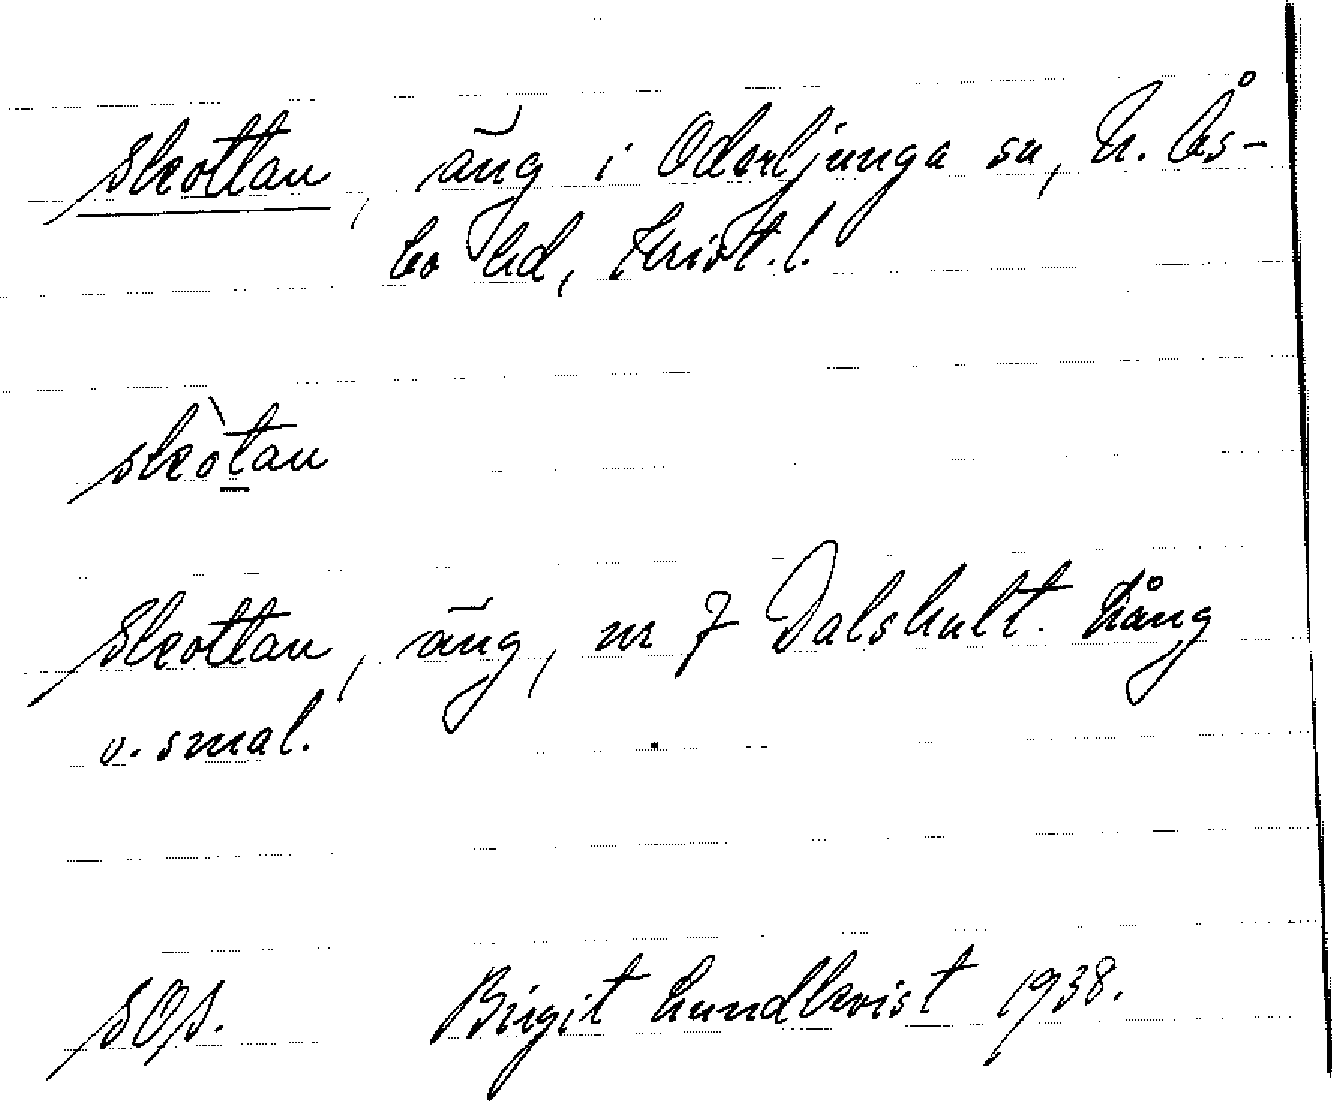 Skottan, äng i Oderljunga sn, N. Ås-
bo hd, Krist. l.
skòtan
Skottan, äng, nr 7 Dalshult. Lång
o. smal.
SOS. Birgit Lundkvist 1938.